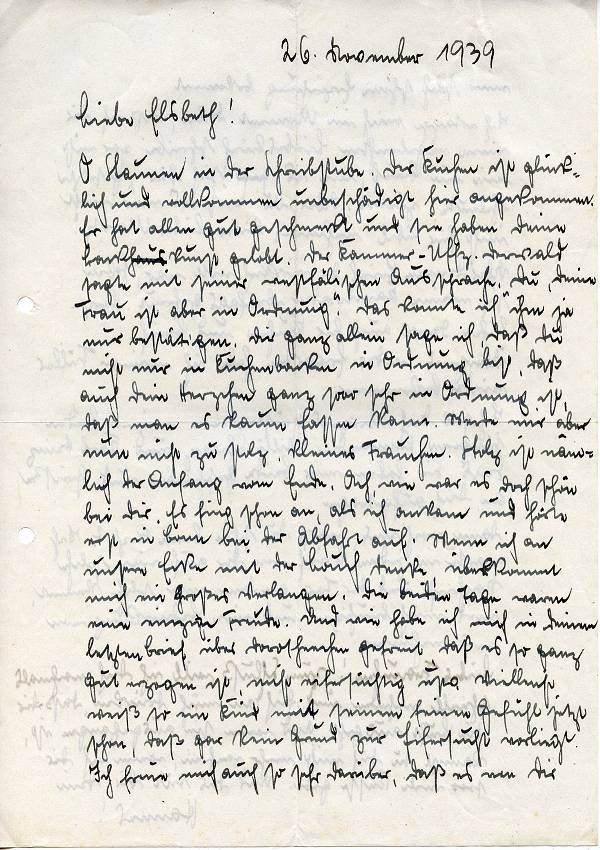 26. November 1939
Liebe Elsbeth!
O Staunen in der Schreibstube. Der Kuchen ist glück-
lich und vollkommen unbeschädigt hier angekommen.
Er hat allen gut geschmeckt und sie haben Deine
Backkunst gelobt. Der Kammer-Uffz. Derwald
sagte mit seiner westfälischen Aussprache, "Du, Deine
Frau ist aber in Ordnung". Das konnte ich ihm ja
nur bestätigen. Dir ganz allein sage ich, daß Du
nicht nur in Kuchenbacken in Ordnung bist, daß
auch Dein Herzchen ganz sooo sehr in Ordnung ist,
daß man es kaum fassen kann. Werde mir aber
nun nicht zu stolz, kleines Frauchen. Stolz ist näm-
lich der Anfang vom Ende. Ach wie war es doch schön
bei Dir. Es fing schon an, als ich ankam und hörte
erst in Bonn bei der Abfahrt auf. Wenn ich an
unsere Ecke mit der Couch denke, überkommt
mich ein Großes Verlangen. Die beiden Tage waren
eine einzige Freude. Und wie habe ich mich in Deinem
letzten Brief über Dorotheechen gefreut daß es so ganz
gut erzogen ist, nicht eifersüchtig usw. Vielleicht
weiß so ein Kind mit seinem feinen Gefühl jetzt
schon, daß gar kein Grund zur Eifersucht vorliegt.
Ich freue mich auch so sehr darüber, daß es von Dir